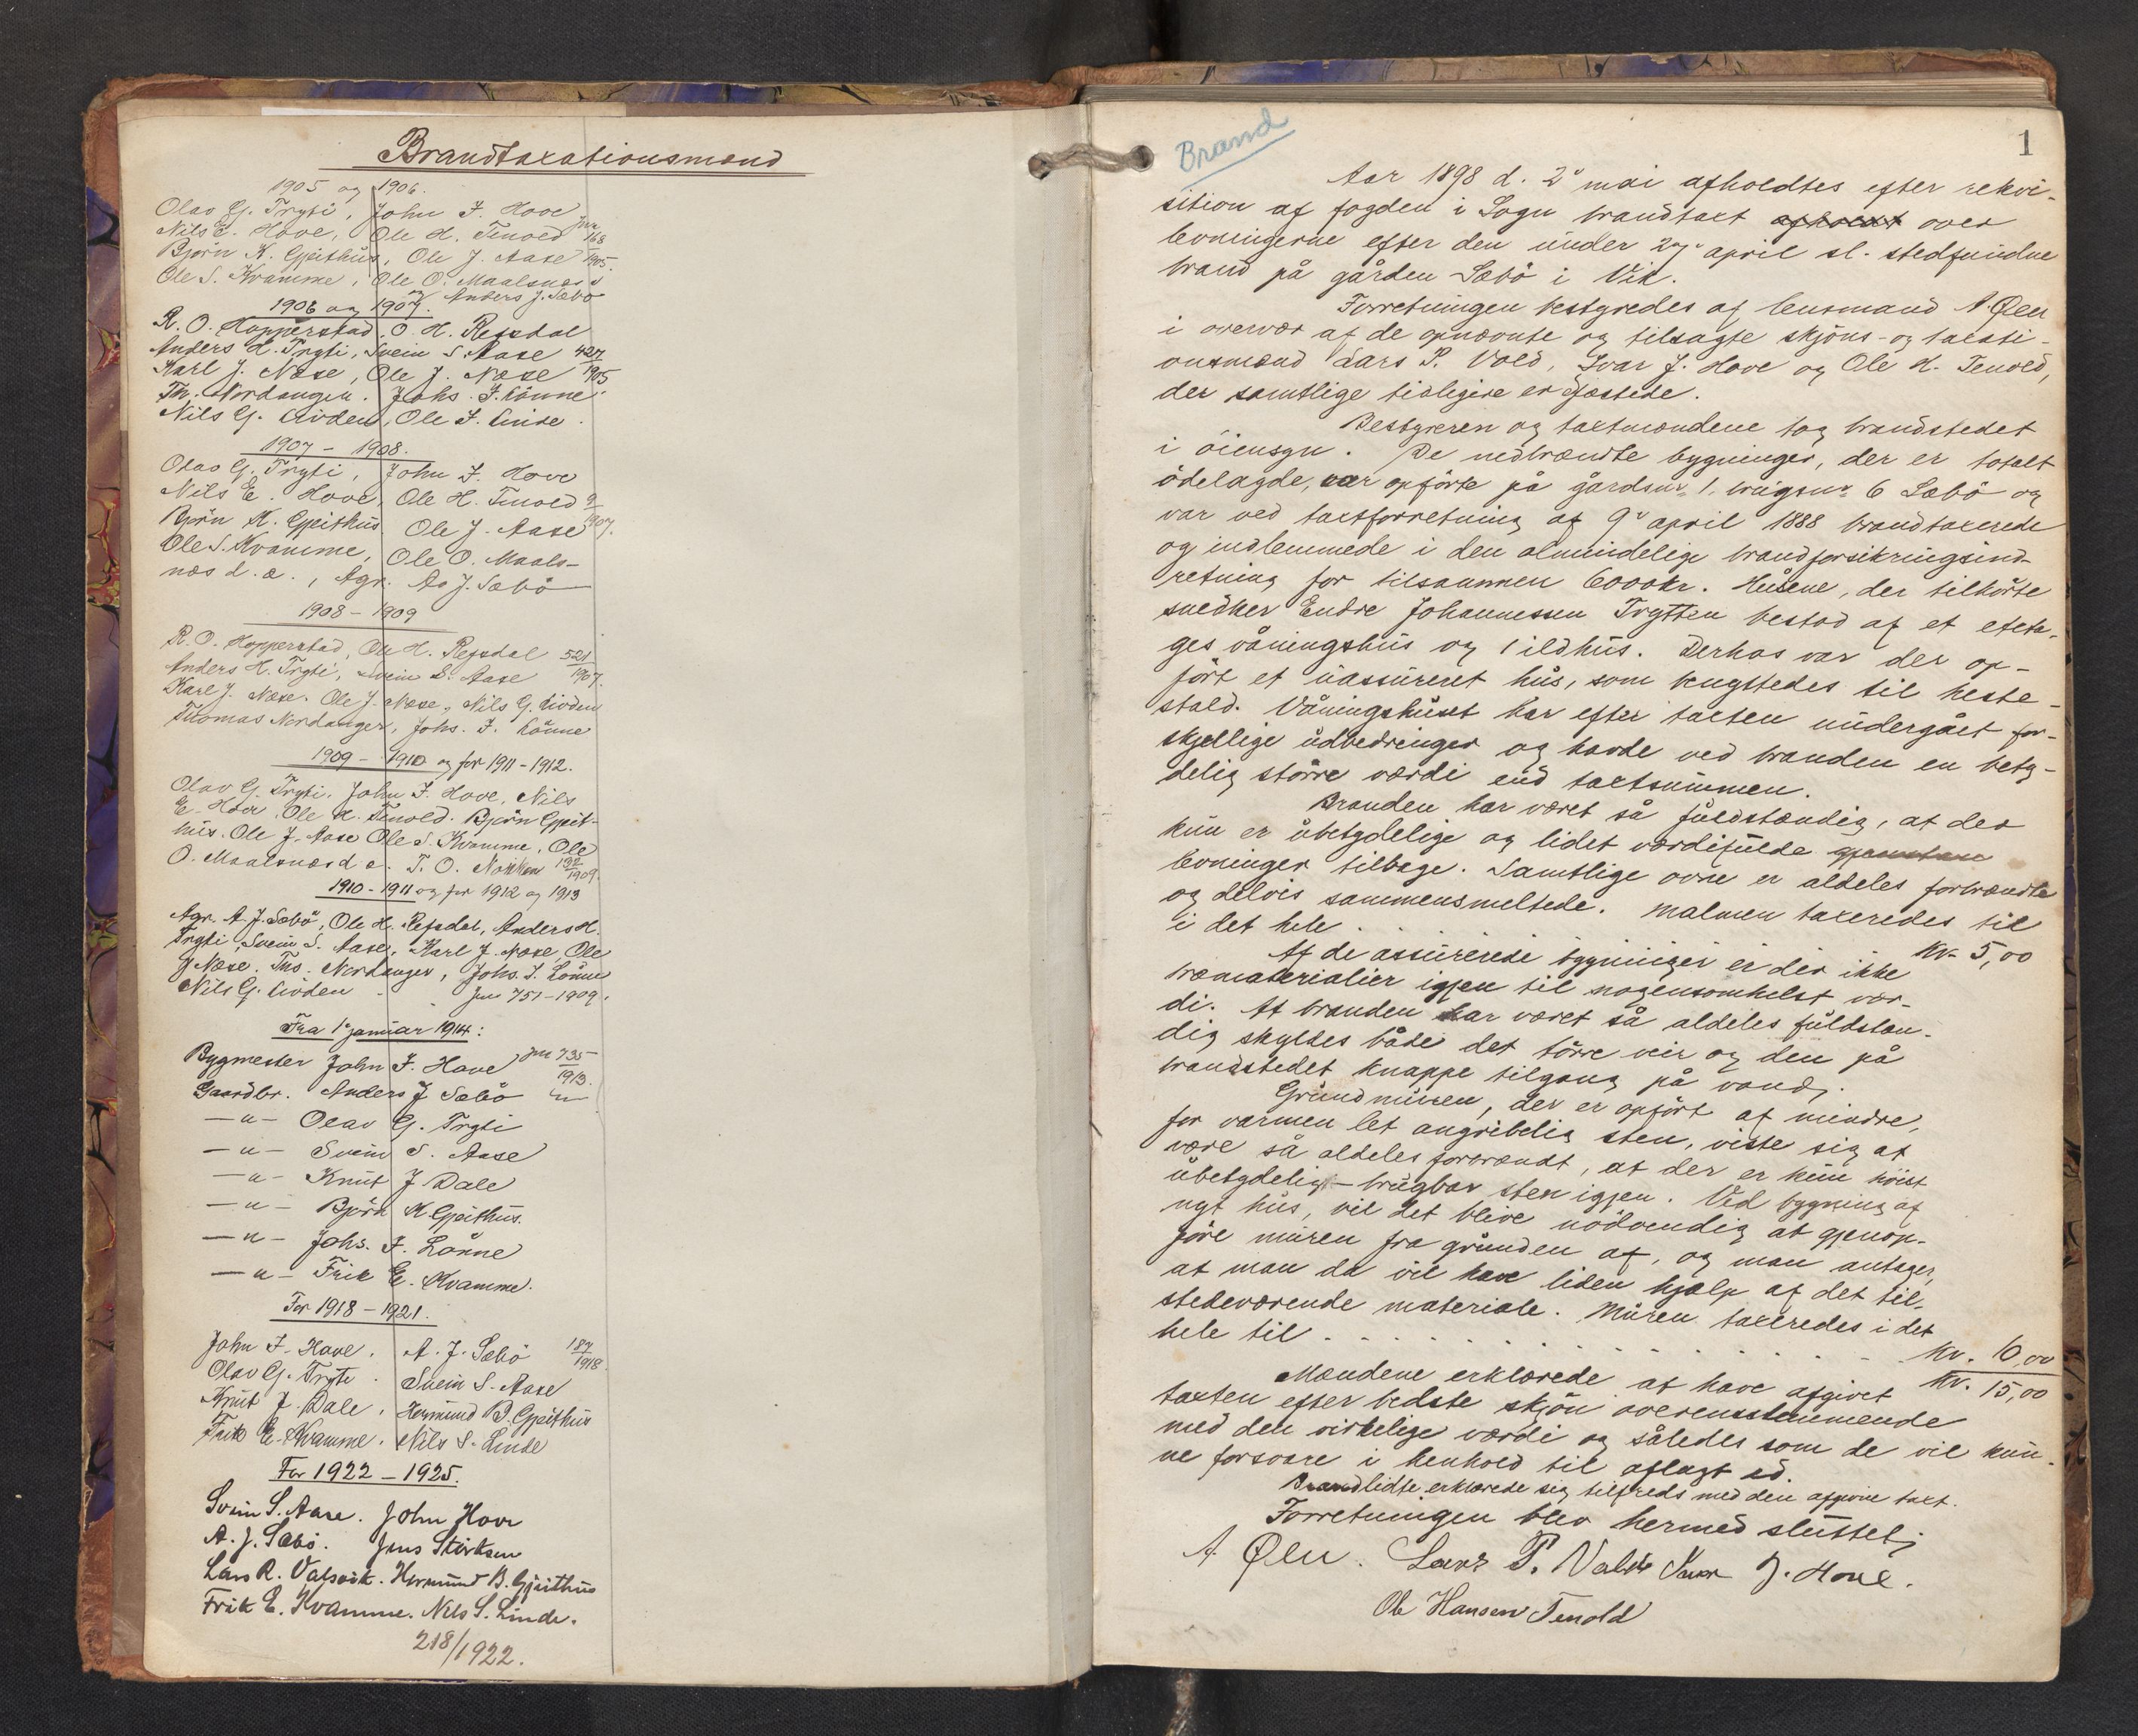 Brandtaxationsmænd
1905 og 1906.
Olav G. Tryti, John F. Hove
Nils E. Hove, Ole H. Tenold Jnr 168
Björn K. Gjeithus, Ole J. Aase 1905.
Ole S. Kvamme, Ole O. Maalsnæs d
og Anders J. Sæbø
1906 og 1907.
R. O. Hopperstad, O. H. Refsdal
Anders H. Tryti, Svein S. Aase 427
Karl J. Næse, Ole J. Næse 1905
Th. Nordanger. Johs. F. Lönne.
Nils G. Livden, Ole F. Linde.
1907 - 1908.
Olav G. Tryti, John F. Hove
Nils E. Hove, Ole H. Tenold 9/1907.
Björn K. Gjeithus. Ole J. Aase
Ole S. Kvamme, Ole O. Maals-
næs d. æ., Agr. As J. Sæbö
1908 - 1909
R. O. Hopperstad, Ole H. Refsdal 521
Anders H. Tryti, Svein S. Aase 1907.
Karl J. Næse. Ole J. Næse, Nils G. Livden
Thomas Nordanger, Johs. F. Lönne
1909 - 1910 og for 1911 - 1912.
Olav G. Tryti. John F. Hove, Nils
E. Hove. Ole H. Tenold. Björn Gjeit-
hus. Ole J. Aase Ole S. Kvamme, Ole
O. Maalsnæs d e. T. O. Nokken 192/1909.
1910 - 1911 og for 1912 og 1913
Agr. A. J. Sæbö, Ole H. Refsdal, Anders H.
Tryti, Svein S. Aase, Karl J. Næse, Ole
J Næse. Ths. Nordanger, Johs. F. Lönne
Nils G. Livden . Jnr 751 - 1909.
Fra 1 januar 1914:
Bygmester John F. Hove Jnr 735
1913.
Gaardbr. Anders J Sæbö
— " — Olav G. Tryti
— " — Svein S. Aase
— " — Knut J Dale
— " — Björn K Gjeithus.
— " — Johs. F. Lönne
— " — Frik E. Kvamme.
For 1918 - 1921.
John F. Hove. A. J. Sæbö 187/1918.
Olav G. Tryti. Svein S. Aase
Knut J. Dale. Hermund B. Gjeithus
Frik E. Kvamme. Nils S. Linde
For 1922 - 1925.
Svein S. Aase. John Hove
A. J. Sæbö. Jens Stirksen
Lars R. Valsvik. Hermund B. Gjeithus
Frik E. Kvamme. Nils S. Linde.
218/1922.
Brand
1
Aar 1898 d. 2' mai afholdtes efter rekvi-
sition af fogden i Sogn brandtaxt afholdt over
levningerne efter den under 27' april sl. stedfundne
brand på gården Sæbö i Vik.
Forretningen bestyredes af lensmand A. Øen
i overvær af de opnævnte og tilsagte skjöns- og taxati-
onsmænd Lars P. Vold, Ivar J. Hove og Ole H. Tenold,
der samtlige tidligere er edfæstede.
Bestyreren og taxtmændene tog brandstedet
i öiensyn. De nedbrændte bygninger, der er totalt
ödelagde, var opförte på gårdsnr. 1, brugsnr. 6 Sæbö og
var ved taxtforretning af 9' april 1888 brandtaxerede
og indlemmede i den almindelige brandforsikringsind-
retning for tilsammen 6000 kr. Husene, der tilhörte
snedker Endre Johannessen Trytten bestod af et eteta-
ges våningshus og 1 ildhus. Derhos var der op-
fört et uassureret hus, som benyttedes til heste-
stald. Våningshuset har efter taxten undergået for-
skjellige udbedringer og havde ved branden en bety-
delig större værdi end taxtsummen.
Branden har været så fuldstændig, at der
kun er ubetydelige og lidet værdifulde gjenstan
levninger tilbage. Samtlige ovne er aldeles forbrændte
og delvis sammensmeltede. Malmen taxeredes til
i det hele . kr. 5,00
Af de assurerede bygninger er der ikke
træmaterialier igjen til nogensomhelst vær-
di. At branden har været så aldeles fuldstæn-
dig skyldes både det törre veir og den på
brandstedet knappe tilgang på vand.
Grundmuren, der er opfört af mindre,
for varmen let angribelig sten, viste sig at
være så aldeles forbrændt, at der er kun höist
ubetydelig brugbar sten igjen. Ved bygning af
nyt hus, vil det blive nödvendig at gjenop-
före muren fra grunden af, og man antager,
at man da vil have liden hjælp af det til-
stedeværende materiale. Muren taxeredes i det
hele til . . . . . . . . . . . kr. 10,00
kr. 15,00
Mændene erklærede at have afgivet
taxten efter bedste skjön overensstemmende
med den virkelige værdi og således som de vil kun-
ne forsvare i henhold til aflagt ed.
Brandlidte erklærede sig tilfreds med den afgivne taxt.
Forretningen blev hermed sluttet.
A. Øen. Lars P. Vold Ivar J. Hove.
Ole Hansen Tenold